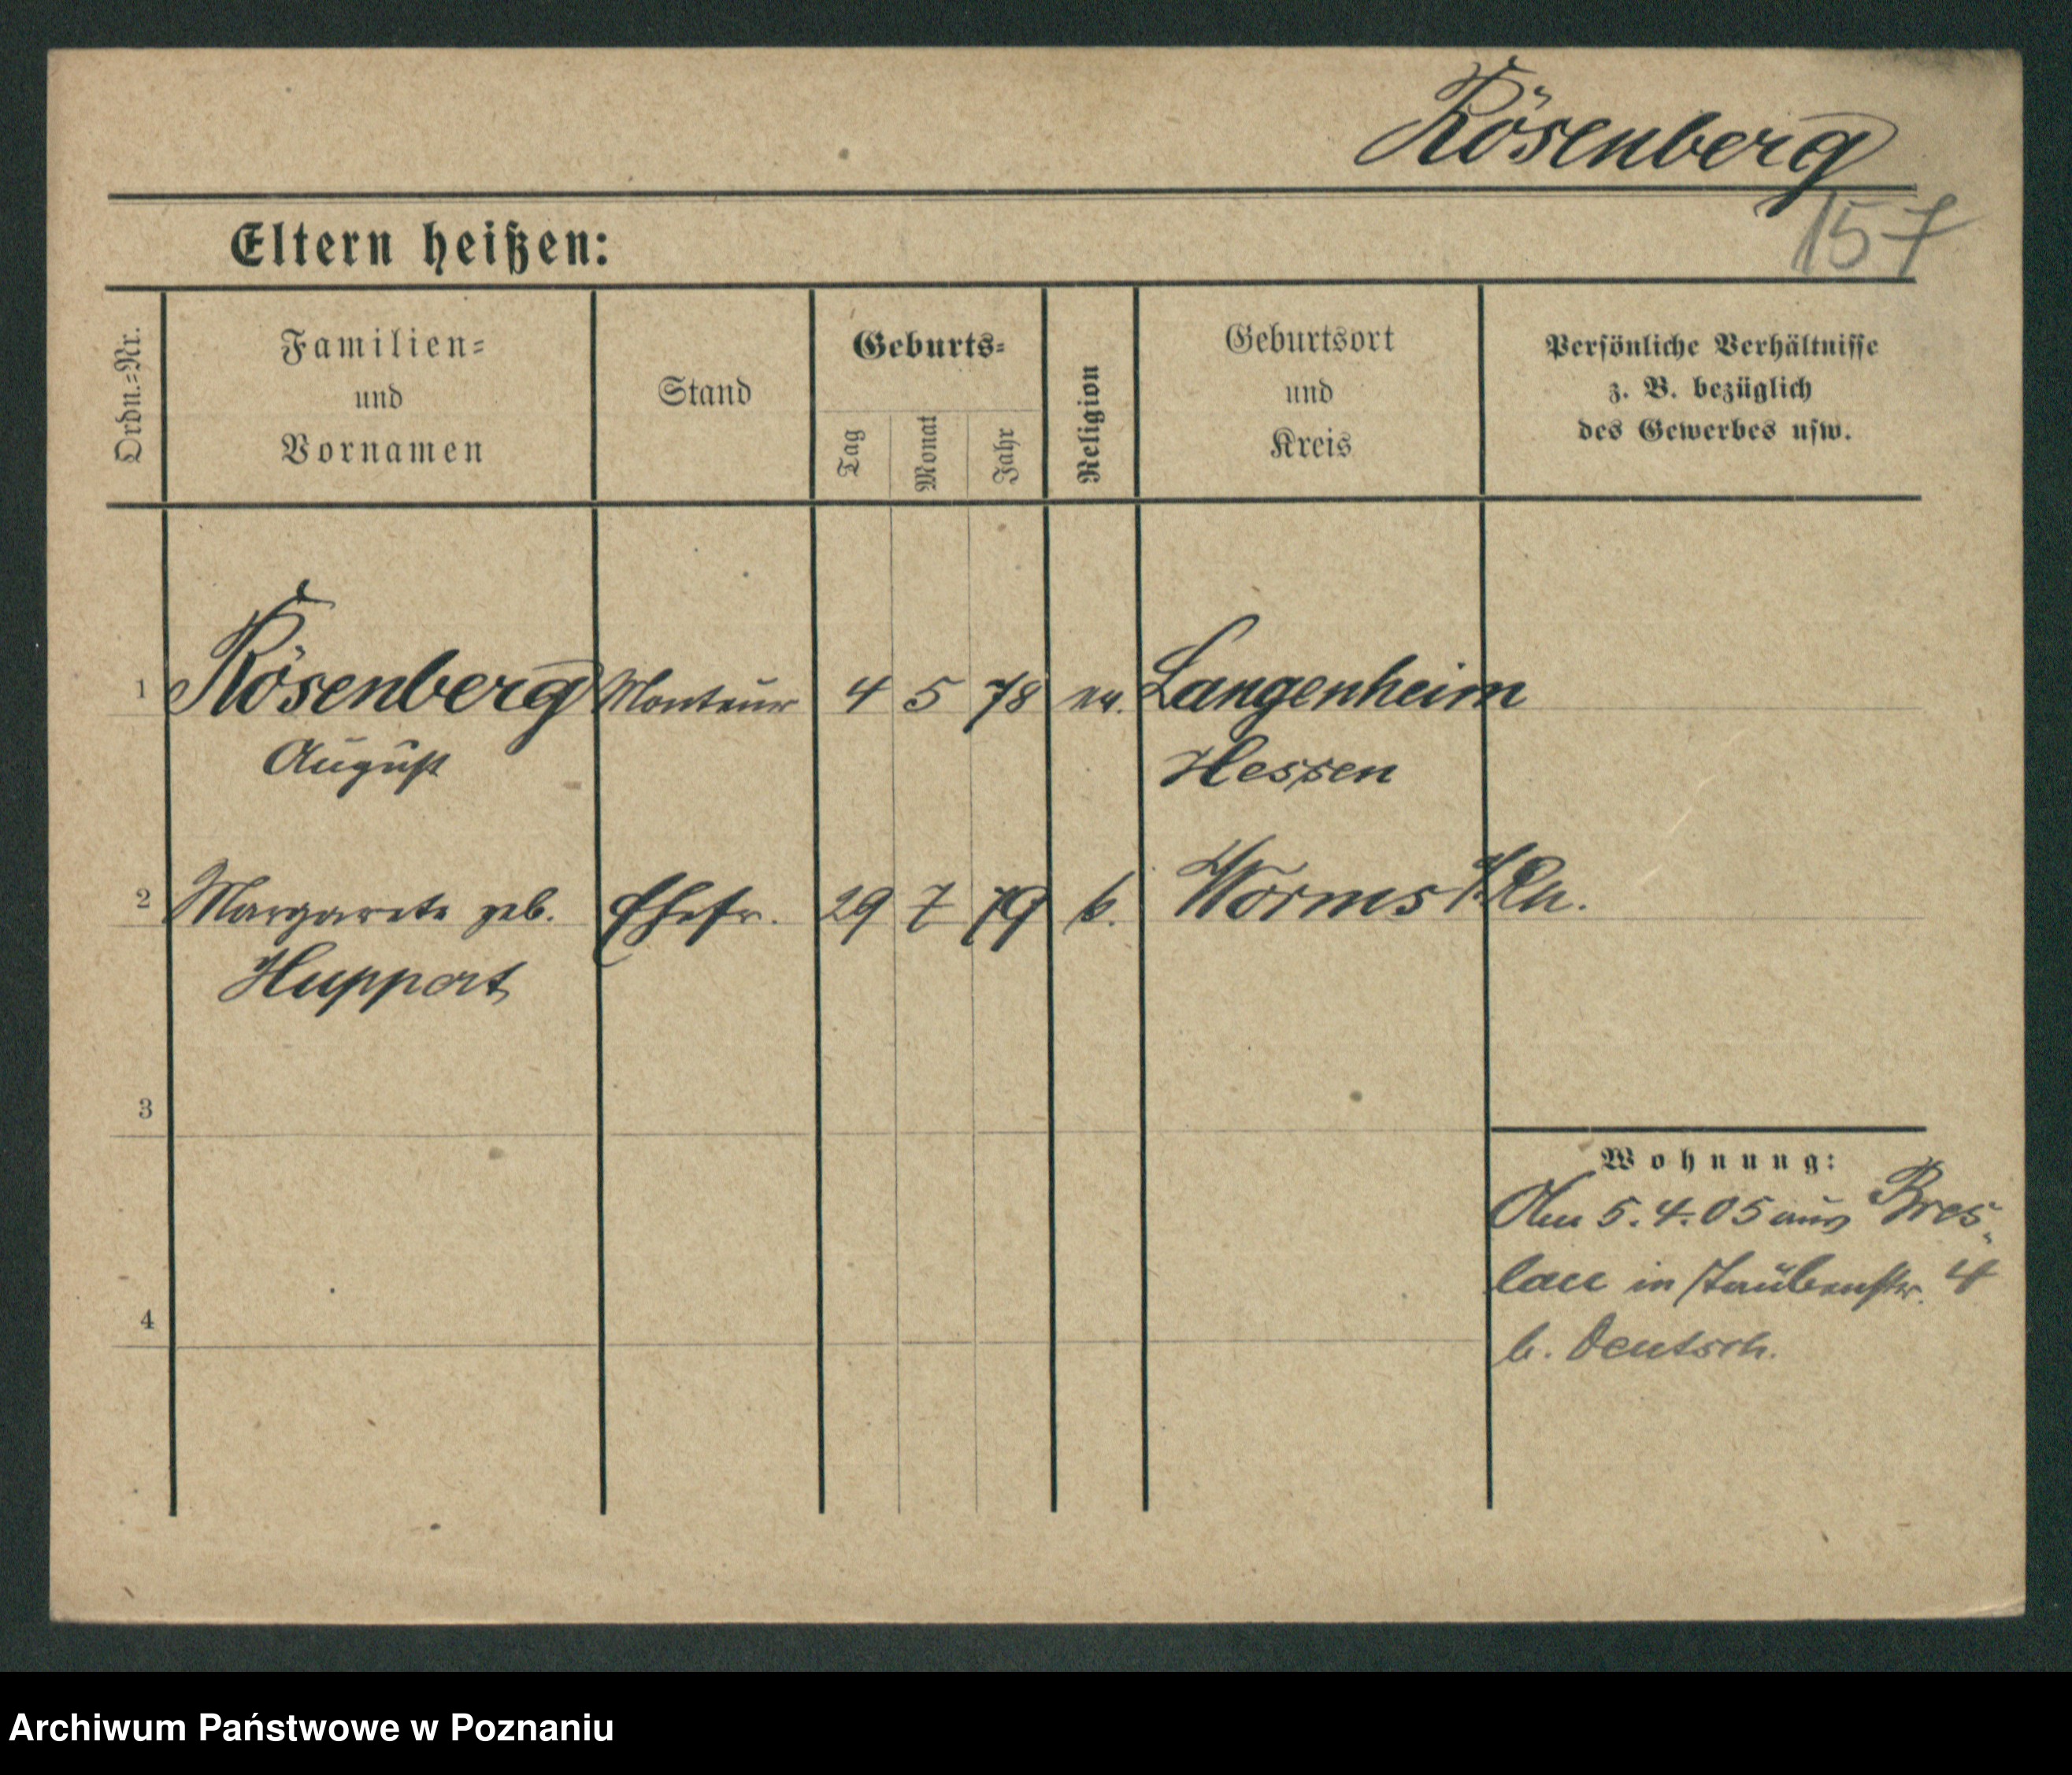 Rösenberg
157
Eltern heißen:
Ordn.=Nr.
Familien=
und
Vornamen
Stand
Geburts=
Tag
Monat
Jahr
Religion
Geburtsort
und
Kreis
Persönliche Verhältnisse
z. B. bezüglich
des Gewerbes usw.
1 Rösenberg Monteur 4 5 78 ev. Langenheim
August Hessen
2 Margarete geb. Ehefr. 29 7 79 k. Worms
Huppert
3
4
Wohnung:
Am 5.4.05 aus Bres-
lau in Taubenstr. 4
b. Deutsch.
Archiwum Państwowe w Poznaniu